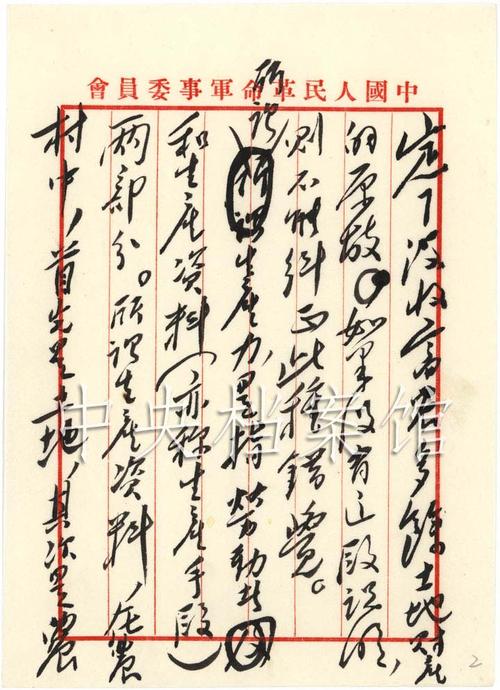 中國人民革命軍事委員會
定下没收富農多餘土地財產
的原故。如果没有这段説明,
則不能糾正此種錯覺。
所謂生產力,是指勞動者
和生產資料(亦称生產手段)
兩部分。所謂生產資料,在農
村中,首先是土地,其次是農
2
中央档案馆